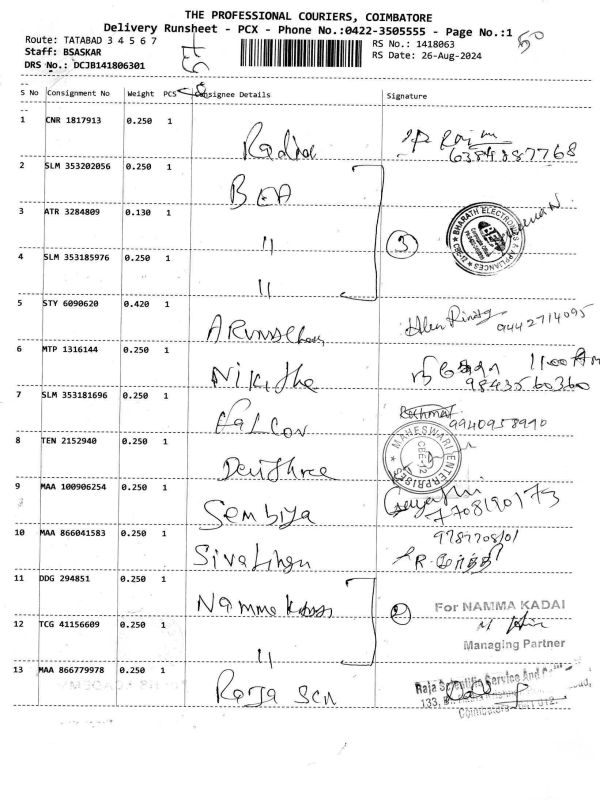 THE PROFESSIONAL COURIERS, COIMBATORE
Delivery Runsheet - PCX - Phone No.:0422-3505555 - Page No.:1
Route: TATABAD 3 4 5 6 7
Staff: BSASKAR
DRS No.: DCJB141806301
RS No.: 1418063
RS Date: 26-Aug-2024
50
S No Consignment No Weight PCS Consignee Details Signature
1 CNR 1817913 0.250 1 Radhae
6384387768
2 SLM 353202056 0.250 1 BEA
3 ATR 3284809 0.130 1 "
3
BHARATH ELECTRONICS & APPLIANCES
4 SLM 353185976 0.250 1 "
5 STY 6090620 0.420 1
9442714095
6 MTP 1316144 0.250 1 Nikitha
11:00 AM
9843560360
7 SLM 353181696 0.250 1 Falcon
9940958990
8 TEN 2152940 0.250 1 Devi three
MAHESWARI ENTERPRISES
CBE-12
9 MAA 100906254 0.250 1 Sembiya
Gayathri
7708190173
10 MAA 866041583 0.250 1 Sivalingu
9787708101
11 DDG 294851 0.250 1 Namma Kadai
2
For NAMMA KADAI
12 TCG 41156609 0.250 1 "
Managing Partner
13 MAA 866779978 0.250 1 Raja Scn
Raja Scientific Service And
133,
Coimbatore